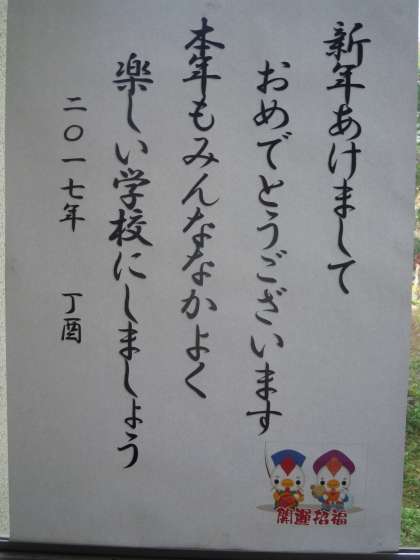 新年あけまして
おめでとうございます
本年もみんななかよく
楽しい学校にしましょう
二〇一七年 丁酉
開運招福